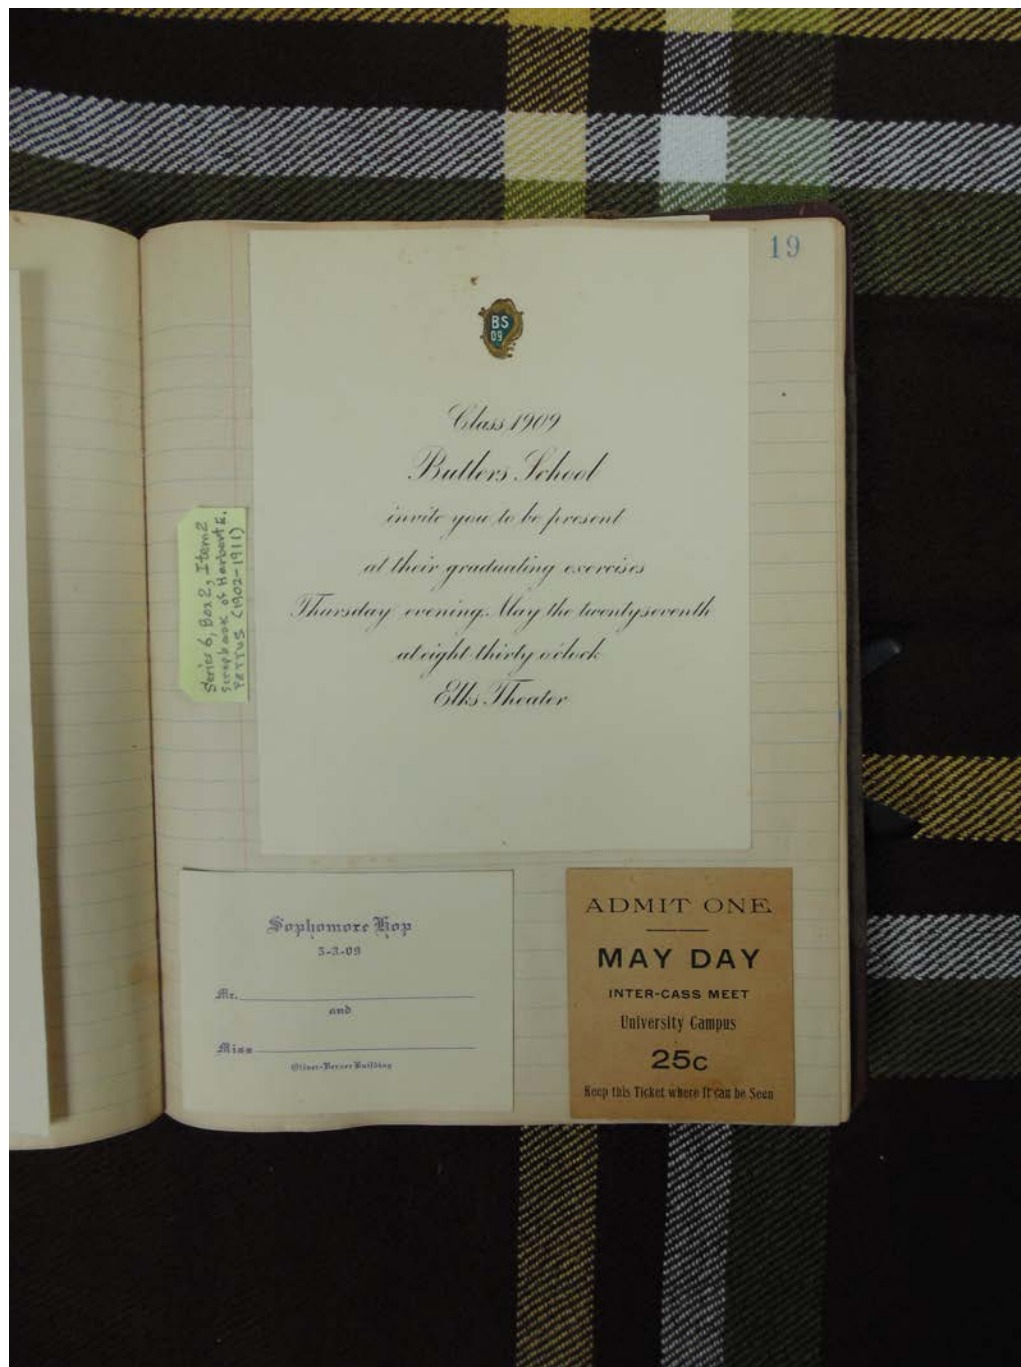 19
BS
09
Class 1909
Butlers School
invite you to be present
at their graduating exercises
Thursday evening, May the twentyseventh
at eight thirty o'clock
Elks Theater
Series 6, Box 2, Item 2
Scrapbook of Herbert E.
PETTUS (1902-1911)
Sophomore Hop
5-3-09
Mr.
and
Miss
Building
ADMIT ONE
MAY DAY
INTER-CASS MEET
University Campus
25c
Keep this Ticket where It can be Seen